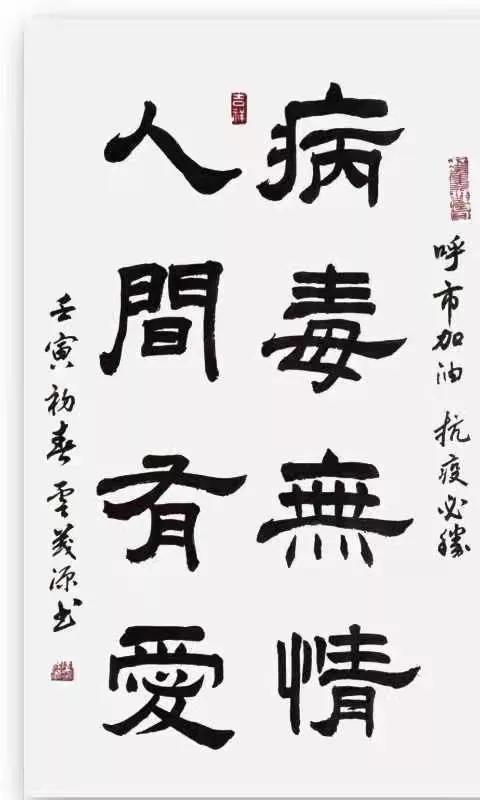 呼市加油 抗疫必勝
病毒無情
吉祥
人間有愛
壬寅初春雲義源书